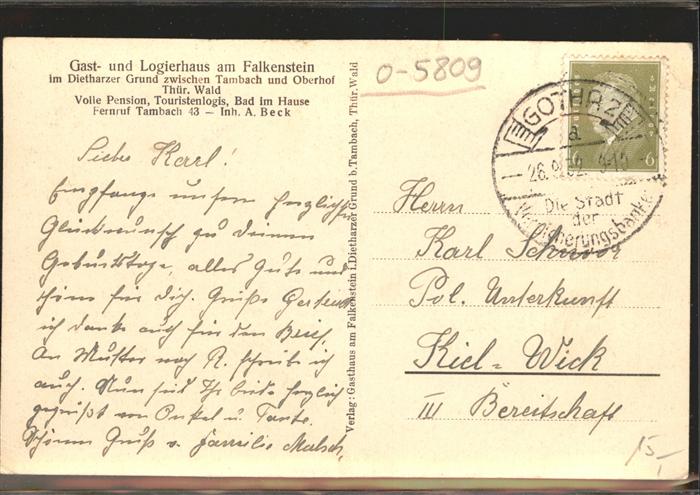 Gast- und Logierhaus am Falkenstein
im Dietharzer Grund zwischen Tambach und Oberhof
Thür. Wald
Volle Pension, Touristenlogis, Bad im Hause
Fernruf Tambach 43 — Inh. A. Beck
Liebe Karl!
Empfange unsern herzlichst
Glückwunsch zu Deinem
Geburtstage, alles Gute und
schöne für Dich. Grüße
ich danke auch für den Brief.
An Mutter nach R. schreibe ich
auch. Nun seid Ihr beide herzlich
gegrüßt von Onkel u. Tante.
Schönen Gruß v. Familie Malsch.
Verlag: Gasthaus am Falkenstein i. Dietharzer Grund b. Tambach, Thür. Wald
0-5809
GOTHA 2
a
26.9.32
Die Stadt
der
Versicherungsbanken
6 6
Herrn
Karl
Pol. Unterkunft
Kiel-Wick
III Bereitschaft
15,-